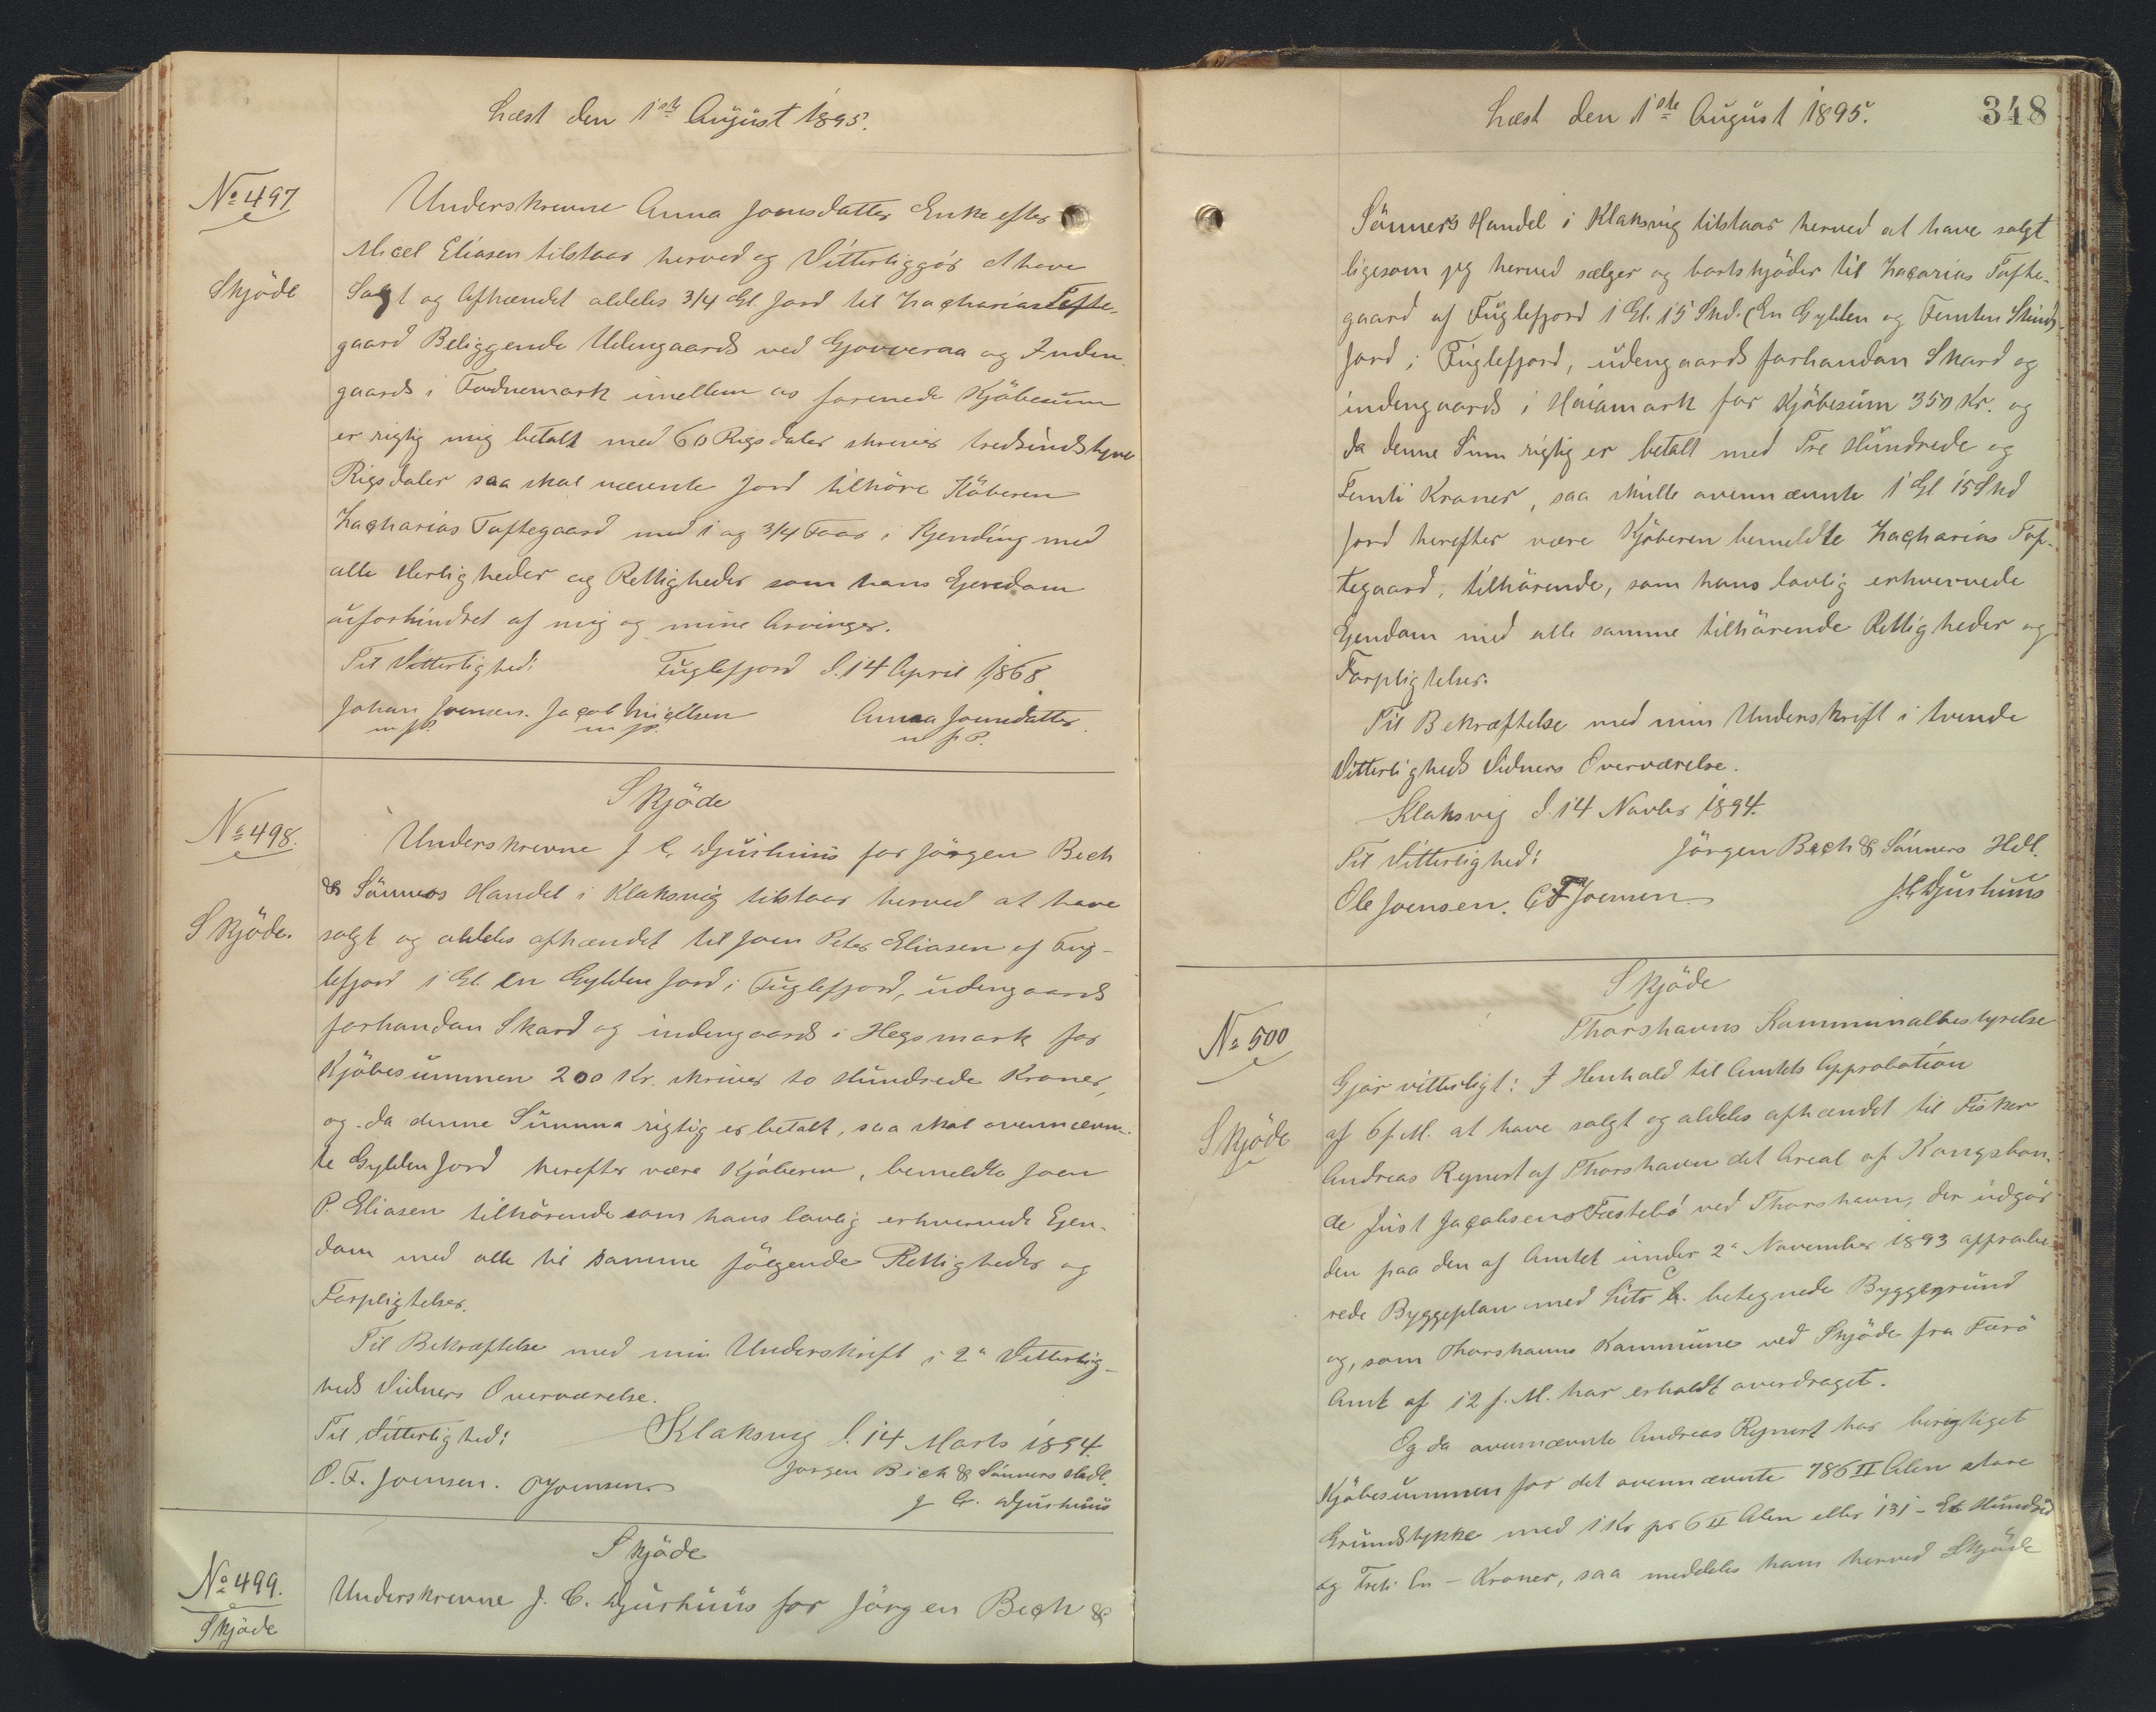 Læst den 1ste August 1895.
No 497
Skjöde
Underskrevne Anna Joensdatter Enke efter
Micel Eliasen tilstaar herved og Vitterliggör at have
Solgt og Afhændet aldeles 3/4 Gl. Jord til Zacharias Tofte-
gaard Beliggende Udengaards ved Gjovveraa og Inden-
gaards i Todnemark imellem os forenede Kjöbesum
er rigtig mig betalt med 60 Rigsdaler skriver tredsindstyve
Rigsdaler saa skal nævnte Jord tilhöre Köberen
Zacharias Toftegaard med 1 og 3/4 Faar i Gjending med
alle Herligheder og Rettigheder som hans Ejendom
uforhindret af mig og mine Arvinger.
Til Vitterlighed: Fuglefjord d. 14 April 1868.
Johan Joensen. Jacob Micelsen Anna Joensdatter
m.p. m.p. m.f.P.
No 498.
Skjöde.
Skjöde
Underskrevne J. C. Djurhuus for Jörgen Bech
& Sönners Handel i Klaksvig tilstaar herved at have
solgt og aldeles afhændet til Joen Peter Eliasen af Fug-
lefjord 1 Gl. En Gylden Jord i Fuglefjord, udengaards
forhandan Skard og indengaards i Hegsmark for
Kjöbesummen 200 Kr. skriver to Hundrede Kroner,
og da denne Summa rigtig er betalt, saa skal ovennævn-
te Gylden Jord herefter være Kjöberen, bemeldte Joen
P. Eliasen tilhörende som hans lovlig erhvervede Ejen-
dom med alle til samme fölgende Rettigheder og
Forpligtelser.
Til Bekræftelse med min Underskrift i 2de Vitterlig-
heds Vidners Overværelse.
Til Vitterlighed: Klaksvig d. 14 Marts 1894.
O. F. Joensen. OJoensen. Jörgen Bech & Sönners Hdl.
J. C. Djurhuus
No 499.
Skjöde
Skjöde
Underskrevne J. C. Djurhuus for Jörgen Bech &
Læst den 1ste August 1895.
348
Sönners Handel i Klaksvig tilstaar herved at have solgt
ligesom jeg herved sælger og bortskjöder til Zacarias Tofte-
gaard af Fuglefjord 1 Gl. 15 Skd. (En Gylden og Femten Skinds-
Jord i Fuglefjord, udengaards forhandan Skard og
indengaards i Haiamark for Kjöbesum 350 Kr. og
da denne Sum rigtig er betalt med Tre Hundrede og
Femti Kroner, saa skulle ovennævnte 1 Gl 15 Skd
Jord herefter være Kjöberen bemeldte Zacharias Tof-
tegaard, tilhörende, som hans lovlig erhvervede
Ejendom med alle samme tilhörende Rettigheder og
Forpligtelser.
Til Bekræftelse med min Underskrift i tvende
Vitterligheds Vidners Overværelse.
Klaksvig d. 14 Novbr 1894.
Til Vitterlighed: Jörgen Bech & Sönners Hdl.
Ole Joensen. C F Joensen. J. C. Djurhuus
No 500
Skjöde
Skjöde
Thorshavns Kommunalbestyrelse
Gjör vitterligt: I Henhold til Amtets Approbation
af 6 f. M. at have solgt og aldeles afhændet til Fisker
Andreas Rynert af Thorshavn det Areal af Kongsbon-
de Just Jacobsens Fæstebö ved Thorshavn, der udgör
den paa den af Amtet under 2de November 1893 approbe-
rede Byggeplan med Litr C. betegnede Byggegrund
og, som Thorshavns Kommune ved Skjöde fra Færö
Amt af 12 f. M. har erholdt overdraget.
Og da ovennævnte Andreas Rynert har berigtiget
Kjöbesummen for det ovennævnte 786 □ Alen store
Grundstykke med 1 Kr pr 6 □ Alen eller 131 - Et Hundred
og Treti En - Kroner, saa meddeles ham herved Skjöde